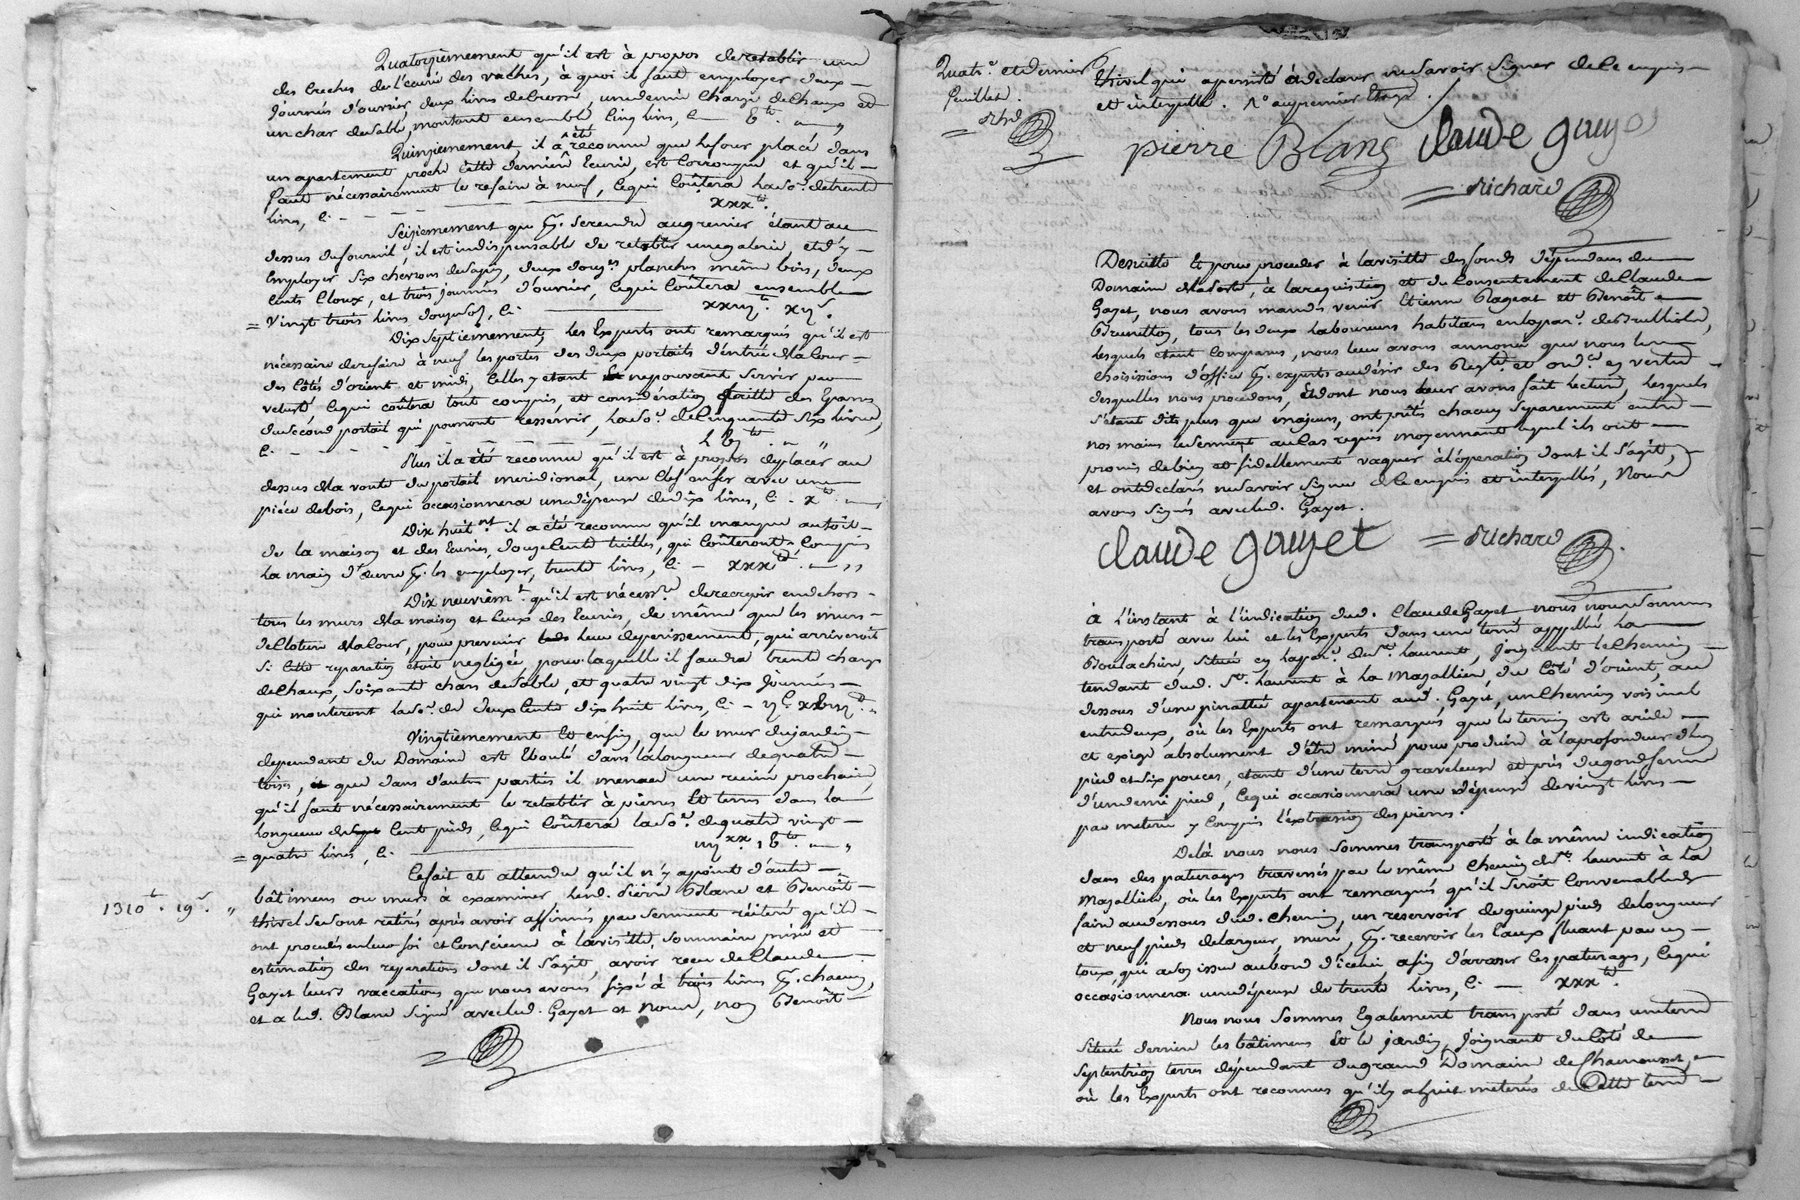 Quatorziemement qu'il est à propos de retablir une
des creches de l'ecurie des vaches, à quoi il faut employer deux
journées d'ouvrier, deux livres de crosse, une demie charge de chaux et
un char de sable, montant ensemble cinq livres, c.
Quinziemement il a été reconnu que le four placé dans
un apartement proche cette derniere Ecurie, est corrompu et qu'il
faut nécessairement le refaire à neuf, ce qui coûtera la so. de trente
livres, c. xxx.
Seiziemement que pr. se rendre au grenier étant au
dessus du fournil, il est indispensable de retablir une galerie et d'y
employer six chevrons de sapin, deux douz.es planches même bois, deux
cents cloux, et trois journées d'ouvrier, ce qui coûtera ensemble
= vingt trois livres douze sols, c.
Dix septiemement, les Experts ont remarqués qu'il est
nécessaire de refaire à neuf les portes des deux portails d'entrée de la cour
des côtés d'orient et midi, celles y etant ne pouvant servir par
veturté ce qui coûtera tout compris et considération faitte des Epares
du second portail qui pourront resservir, la so. de cinquante six livres,
c.
Plus il a été reconnu qu'il est à propos de placer au
dessus de la voute du portail meridional, une clef en fer avec une
piéce de bois, ce qui occasionnera une dépense de dix livres, c. x
Dix huit.nt il a été reconnu qu'il manque au toit
de la maison et des Ecuries, douze cent tuilles, qui coûteront, compris
la main d'œuvre pr. les employer, trente livres, c. xxx
Dix neuvièm.t qu'il est nécess.re de recrepir en dehors
tous les murs de la maison et ceux des Ecuries, de même que les murs
de cloture de la cour, pour prevenir leur deperissement, qui arriveroit
si cette reparation étoit negligée, pour laquelle il faudra trente chars
de chaux, soixante chars de sable, et quatre vingt dix journées
qui monteront la so. de deux cents dix huit livres, c.
Vingtiemement Et enfin, que le mur du jardin
dependant du Domaine est Eboulé dans la longueur de quatre
toises, que dans d'autres parties il menace une ruine prochaine,
qu'il faut nécessairement le retablir à pierres et terres dans la
longueur de cent pieds, ce qui coûtera la so. de quatre vingt
= quatre livres, c.
Ce fait et attendu qu'il n'y a point d'autre
bâtimens ou murs à examiner lesd. Pierre Blanc et Benoît
1310 t. 19 s. " Thivel se sont retirés après avoir affirmés par serment réitéré qu'ils
ont procedés en leur foi et conscience à la visitte, sommaire prisée et
estimation des reparations dont il s'agit, avoir reçu de Claude
Gayet leurs vaccations, que nous avons fixé à trois livres pr. chacun,
et a led. Blanc signé avec led. Gayet et nous, non Benoît
Quatr.e et dernier
feuillet.
Rhd
Thivel qui a persisté à declarer ne savoir signer de ce enquis
et interpellé.
pierre Blanc Claude gayet
= Richard
Desuitte Et pour proceder à la visitte des fonds dependans du
Domaine de la Forte, à la requisition et du consentement de Claude
Gayet, nous avons mandés venir Etienne Rageat et Benoît
Brunetton, tous les deux laboureurs habitans en la par. de Brullioles,
lesquels etant comparus, nous leur avons annoncé que nous les
choisissions d'office pr. experts au désir des Regl.ts et ord.ces en vertu
desquelles nous procedons, Et dont nous leur avons fait lecture, lesquels
s'étant dits plus que majeurs, ont prêtés chacun separement entre
nos mains le serment au cas requis moyennant lequel ils ont
promis de bien et fidellement vaquer à l'operation dont il s'agit,
et ont declarés ne savoir signer de ce enquis et interpellés, Nous
avons signés avec led. Gayet.
Claude gauyet = Richard
À l'instant à l'indication dud. Claude Gayet nous nous sommes
transporté avec lui et les Experts dans une terre appellée la
Boulachire, située en la par. de St. Laurent, joignant le chemin
tendant dud. St. Laurent à la Magallier, du côté d'orient, au
dessous d'une pinattée appartenant aud. Gayet, un chemin voisinal
entredeux, où les Experts ont remarqués que le terrein est aride
et exige absolument d'être miné pour produire à la profondeur d'un
pied et six pouces, etant d'une terre graveleuse et près du gond ferme
d'un demi pied, ce qui occasionnera une dépense de vingt livres
par meterée y compris l'extraction des pierres.
Delà nous nous sommes transporté à la même indication
dans des paturages traversés par le même chemin de St. Laurent à la
Magallier, où les Experts ont remarqués qu'il seroit convenable de
faire au dessous dud. chemin, un reservoir de quinze pieds de longueur
et neuf pieds de largeur, muré, pr. recevoir les Eaux fluant par un
toux qui a son issue au bord d'icelui afin d'arroser les paturages, ce qui
occasionnera une dépense de trente livres, c. xxx
Nous nous sommes Egalement transporté dans une terre
située derriere les bâtimens Et le jardin, joignant du côté de
septentrion terres dépendant du grand Domaine de Chamousset,
où les Experts ont reconnus qu'il y a huit meterées de cette terre